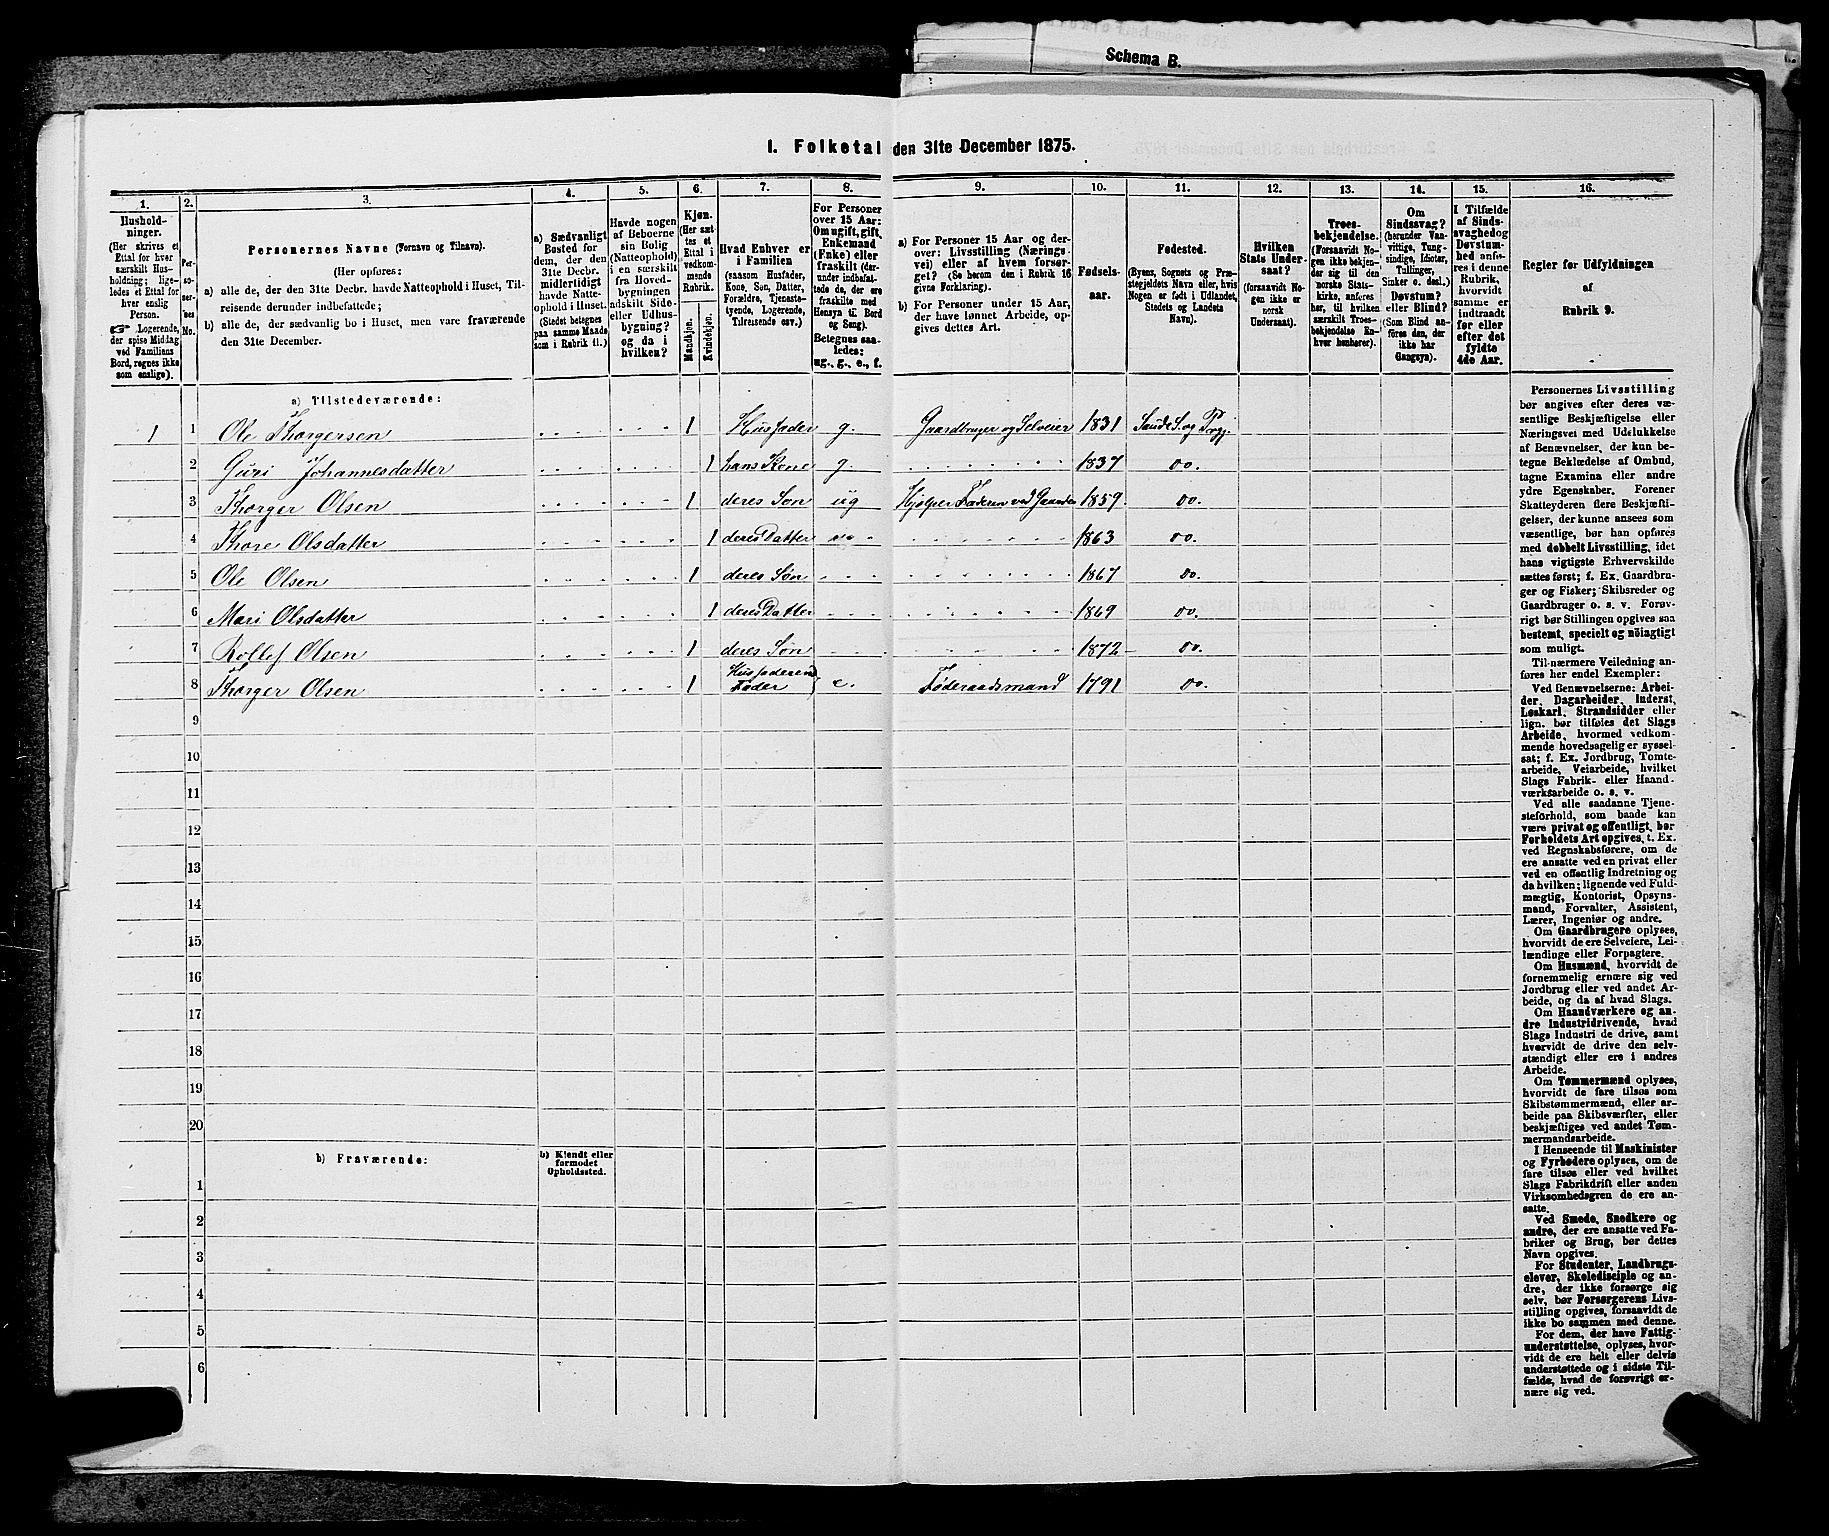 Schema B.
1. Folketal den 31te December 1875.
1. 2. 3. 4. 5. 6. 7. 8. 9. 10. 11. 12. 13. 14. 15. 16.
Hushold-
ninger.
(Her skrives et
Ettal for hver
særskilt Hus-
holdning; lige-
ledes et Ettal for
hver enslig
Person.
☞ Logerende,
der spise Middag
ved Familiens
Bord, regnes ikke
som enslige).
Per-
so-
ner-
nes
No.
Personernes Navne (Fornavn og Tilnavn).
(Her opføres:
a) alle de, der den 31te Decbr. havde Natteophold i Huset, Til-
reisende derunder indbefattede;
b) alle de, der sædvanlig bo i Huset, men vare fraværende
den 31te December.
a) Sædvanligt
Bosted for
dem, der den
31te Decbr.
midlertidigt
havde Natte-
ophold i Huset.
(Stedet betegnes
paa samme Maade,
som i Rubrik 11.)
Havde nogen
af Beboerne
sin Bolig
(Natteophold)
i en særskilt
fra Hoved-
bygningen
adskilt Side-
eller Udhus-
bygning?
og da i
hvilken?
Kjøn.
(Her sæt-
tes et
Ettal i
vedkom-
mende
Rubrik.
Mandkjøn.
Kvindekjøn.
Hvad Enhver er
i Familien
(saasom Husfader,
Kone, Søn, Datter,
Forældre, Tjeneste-
tyende, Logerende,
Tilreisende osv.)
For Personer
over 15 Aar:
Om ugift, gift,
Enkemand
(Enke) eller
fraskilt (der-
under indbefat-
tede de, der ere
fraskilte med
Hensyn til Bord
og Seng).
Betegnes saa-
ledes:
ug., g., e., f.
a) For Personer 15 Aar og der-
over: Livsstilling (Nærings
vei) eller af hvem forsør-
get? (Se herom den i Rubrik 16
givne Forklaring).
b) For Personer under 15 Aar,
der have lønnet Arbeide, op-
gives dettes Art.
Fødsels-
aar.
Fødested.
(Byens, Sognets og Præ-
stegjeldets Navn eller, hvis
Nogen er født i Udlandet,
Stedets og Landets
Navn).
Hvilken
Stats Under-
saat?
(forsaavidt No-
gen ikke er
norsk
Undersaat).
Troes-
bekjendelse.
(Forsaavidt No-
gen ikke bekjen-
der sig til den
norske Stats-
kirke, anføres
her, til hvilken
særskilt Troes-
bekjendelse En-
hver henhører).
Om
Sindssvag?
(herunder Van-
vittige, Tung-
sindige, Idioter,
Tullinger,
Sinker o. desl.)
Døvstum?
eller Blind?
(Som Blind an-
føres den, der
ikke har
Gangsyn).
I Tilfælde
af Sinds-
svaghed og
Døvstum-
hed anfø-
res i denne
Rubrik,
hvorvidt
samme er
indtraadt
før eller
efter det
fyldte
4de Aar.
Regler for Udfyldningen
af
Rubrik 9.
a) Tilstedeværende:
1 1 Ole Thorgersen 1 Husfader g. Gaardbruger og Selveier 1831 Saude S. og Prgj.
2 Guri Johannesdatter 1 hans Kone g. 1837 do.
3 Thorger Olsen 1 deres Søn ug Hjelper Faderen ved Gaarden 1859. do.
4 Thore Olsdatter 1 deres Datter 1863 do.
5 Ole Olsen 1 deres Søn 1867 do.
6 Mari Olsdatter 1 deres Datter 1869 do.
7 Rollef Olsen 1 deres Søn 1872 do.
8 Thorger Olsen 1 Husfaderens Fader e. Føderaadsmand 1791 do.
9
10
11
12
13
14
15
16
17
18
19
20
b) Fraværende:
b) Kjendt eller
formodet
Opholdssted.
1
2
3
4
5
6
Personernes Livsstilling
bør angives efter deres væ-
sentlige Beskjæftigelse eller
Næringsvei med Udelukkelse
af Benævnelser, der kun be-
tegne Beklædelse af Ombud,
tagne Examina eller andre
ydre Egenskaber. Forener
Skatteyderen flere Beskjæfti-
gelser, der kunne ansees som
væsentlige, bør han opføres
med dobbelt Livsstilling, idet
hans vigtigste Erhvervskilde
sættes først; f. Ex. Gaardbru-
ger og Fisker; Skibsreder og
Gaardbruger o. s. v. Forøv-
rigt bør Stillingen opgives saa
bestemt, specielt og nøiagtigt
som muligt.
Til nærmere Veiledning an-
føres her endel Exempler:
Ved Benævnelserne: Arbei-
der, Dagarbeider, Inderst,
Løskarl, Strandsidder eller
lign. bør tilføies det Slags
Arbeide, hvormed vedkom-
mende hovedsagelig er syssel-
sat; f. Ex. Jordbrug, Tomte-
arbeide, Veiarbeide, hvilket
Slags Fabrik- eller Haand-
værksarbeide o. s. v.
Ved alle saadanne Tjene-
steforhold, som baade kan
være privat og offentligt, bør
Forholdets Art opgives, t. Ex.
ved Regnskabsførere, om de
ere ansatte ved en privat eller
ved en offentlig Indretning og
da hvilken; lignende ved Fuld-
mægtig, Kontorist, Opsyns-
mand, Forvalter, Assistent,
Lærer, Ingeniør og andre.
Om Gaardbrugere oplyses,
hvorvidt de ere Selveiere, Lei-
lændinge eller Forpagtere.
Om Husmænd, hvorvidt de
fornemmelig ernære sig ved
Jordbrug eller ved andet Ar-
beide, og da af hvad Slags.
Om Haandværkere og an-
dre Industridrivende, hvad
Slags Industri de drive, samt
hvorvidt de drive den selv-
stændigt eller ere i andres
Arbeide.
Om Tømmermænd oplyses,
hvorvidt de fare tilsøs som
Skibstømmermænd, eller ar-
beide paa Skibsværfter, eller
beskjæftiges ved andet Tøm-
mermandsarbeide.
I Henseende til Maskinister
og Fyrbødere oplyses, om de
fare tilsøs eller ved hvilket
Slags Fabrikdrift eller anden
Virksomhedsgren de ere an-
satte.
Ved Smede, Snedkere og
andre, der ere ansatte ved Fa-
briker og Brug, bør dettes
Navn opgives.
For Studenter, Landbrugs-
elever, Skoledisciple og an-
dre, der ikke forsørge sig
selv, bør Forsørgerens Livs-
stilling opgives, forsaavidt de
ikke bo sammen med denne.
For dem, der have Fattig-
understøttelse, oplyses, hvor-
vidt de ere helt eller delvis
understøttede og i sidste Til-
fælde, hvad de forøvrigt er-
nære sig ved.